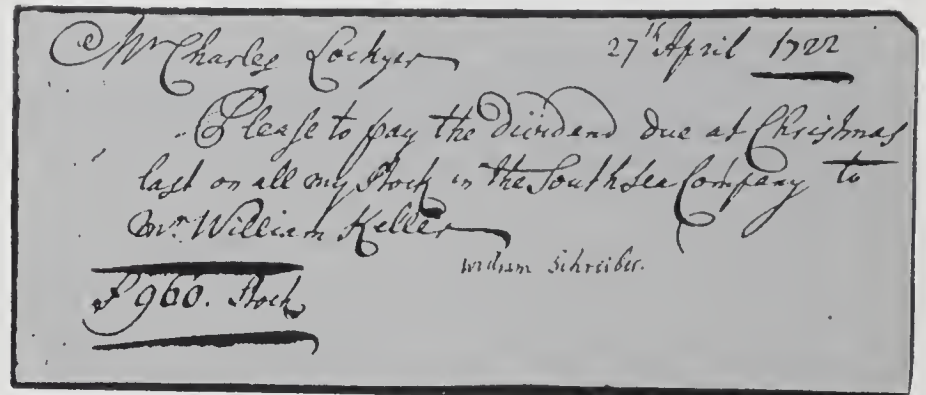 Mr Charles Lockyer 27th April 1722
Please to pay the Dividend due at Christmas
last on all my Stock in the South Sea Company to
Mr. William Keller
William Schreiber.
£960. Stock